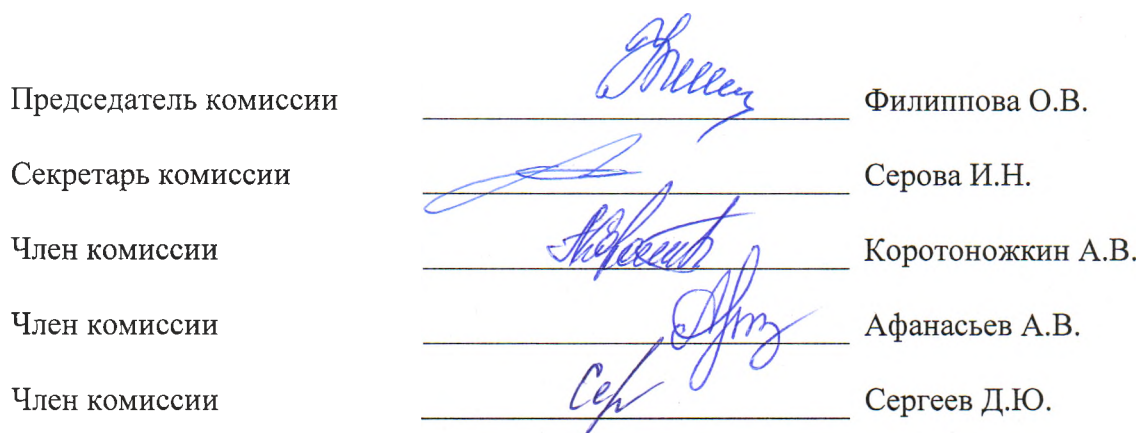 Председатель комиссии Филиппова О.В.
Секретарь комиссии Серова И.Н.
Член комиссии Коротоножкин А.В.
Член комиссии Афанасьев А.В.
Член комиссии Сер Сергеев Д.Ю.